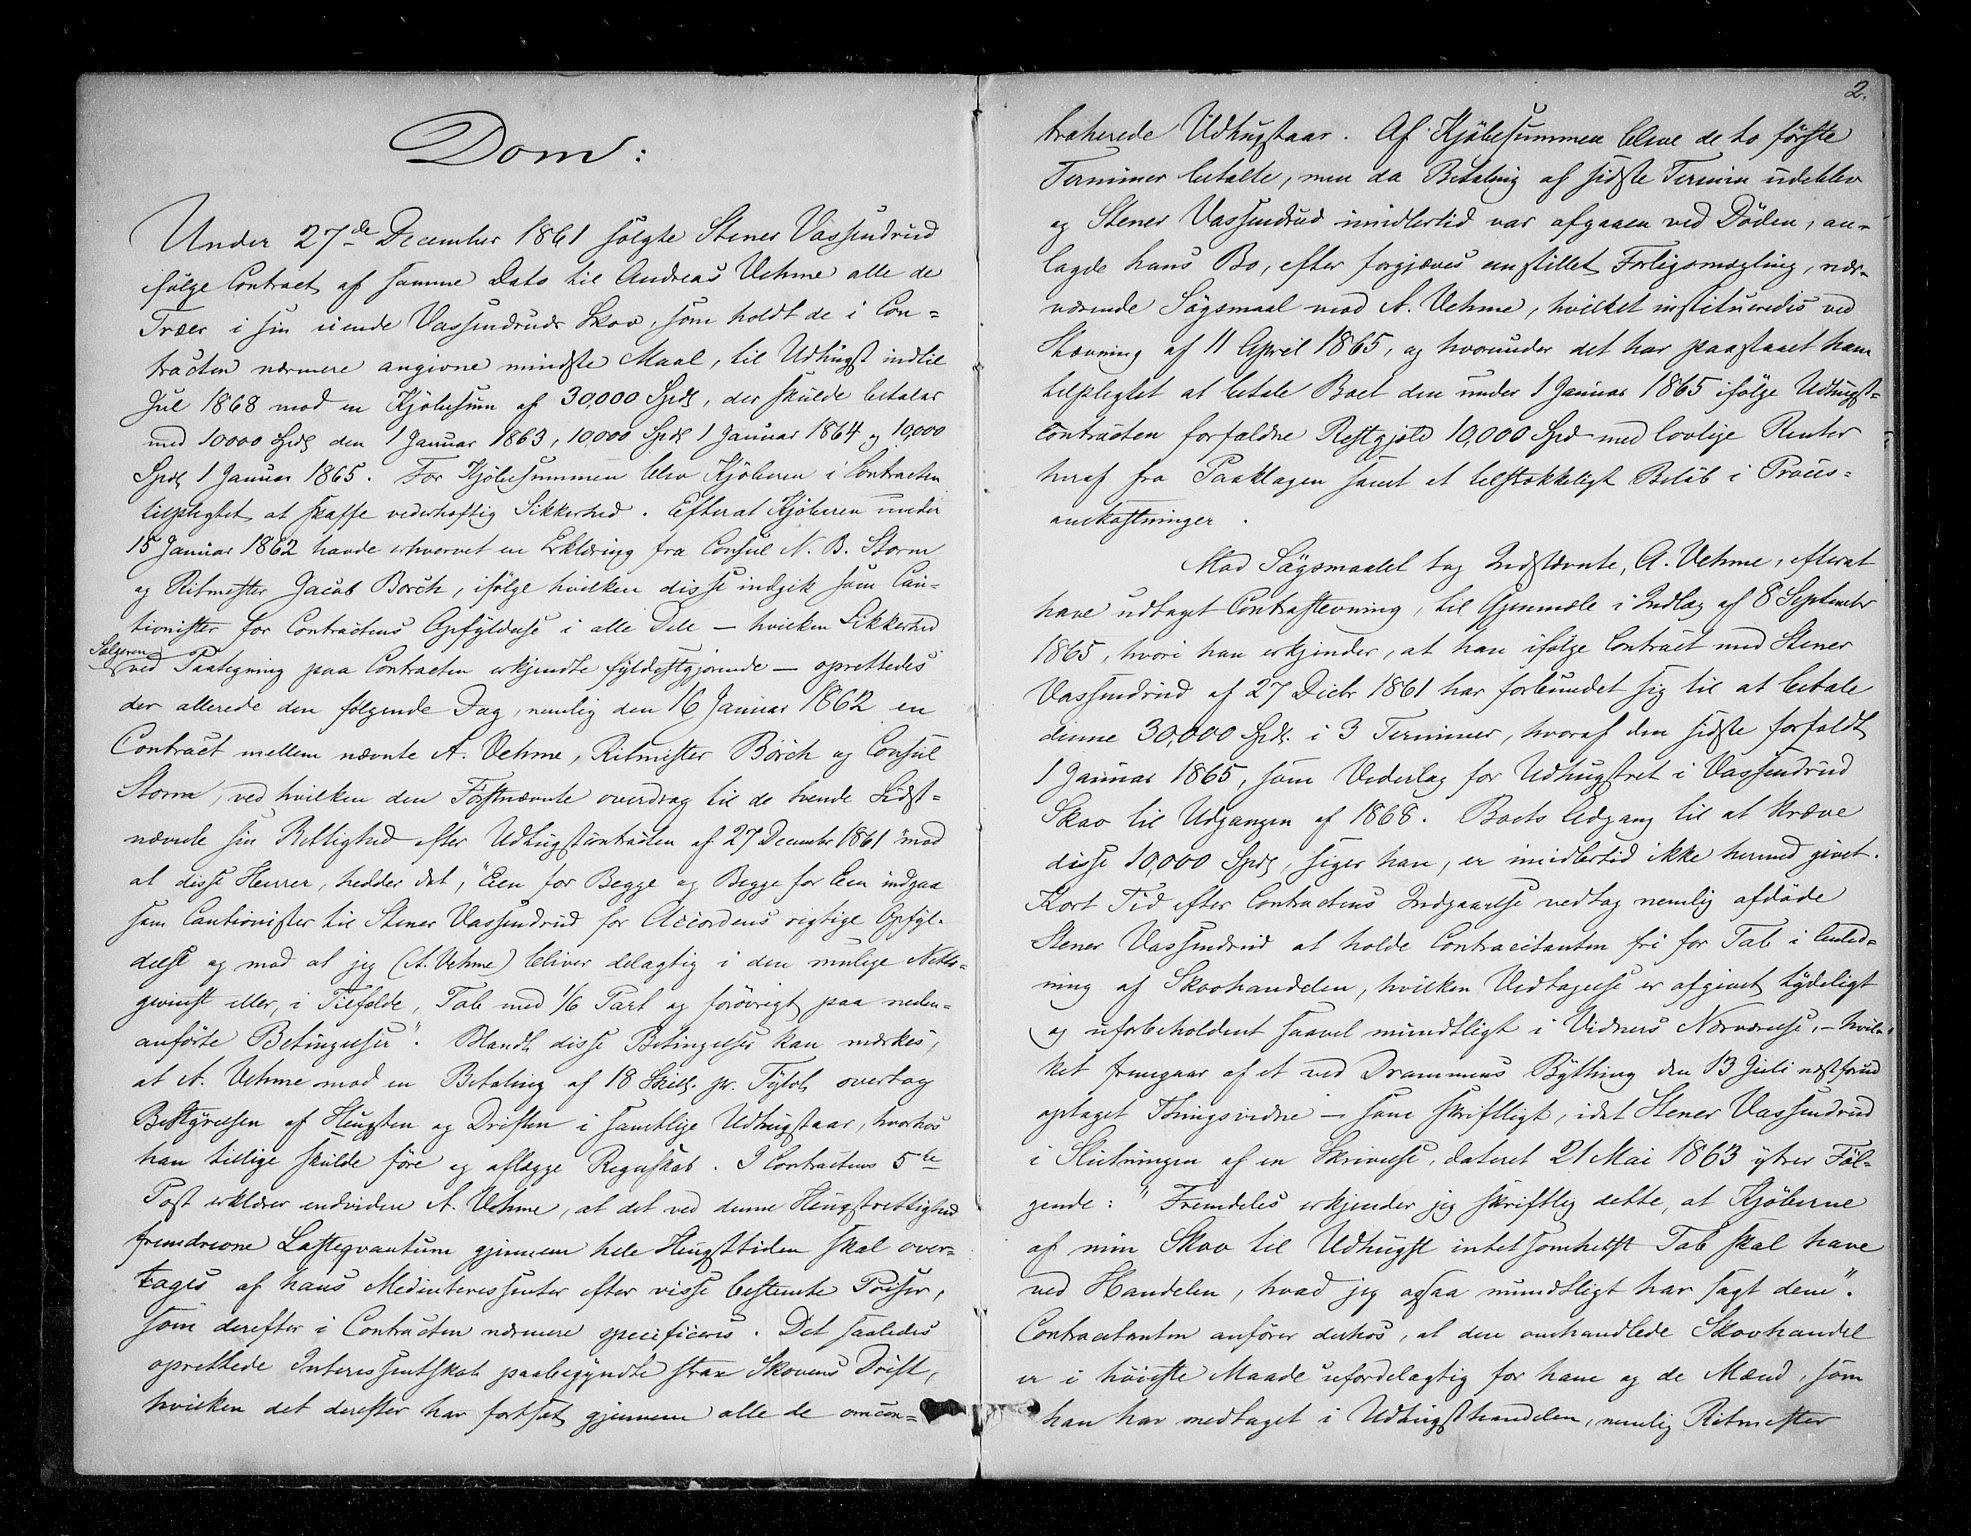 Dom:
Under 27de December 1861 solgte Stener Vassendrud
ifølge Contract af samme Dato til Andreas Vehme alle de
Træer i sin eiende Vassendruds Skov, som holdt de i Con-
tracten nærmere angivne mindste Maal, til Udhugst indtil
Jul 1868 mod en Kjøbesum af 30,000 Spdl, der skulde betales
med 10000 Spdl den 1 Januar 1863, 10,000 Spdl 1 Januar 1864 og 10,000
Spdl 1 Januar 1865. For Kjøbesummen blev Kjøberen i Contracten
tilpligtet at skaffe vederhæftig Sikkerhed. Efterat Kjøberen under
15 Januar 1862 havde erhvervet en Erklæring fra Consul N. B. Storm
og Ritmester Jacob Borch, ifølge hvilken disse indgik som Cau-
tionister for Contractens Opfyldelse i alle Dele – hvilken Sikkerhed
Sælgeren
ved Paategning paa Contracten erkjendte fyldestgjørende – oprettedes
der allerede den følgende Dag, nemlig den 16 Januar 1862 en
Contract mellem nævnte A. Vehme, Ritmester Börch og Consul
Storm, ved hvilken den Førstnævnte overdrog til de tvende Sidst-
nævnte sin Rettighed efter Udhugstcontracten af 27 December 1861 "mod
at disse Herrer, hedder det, "Een for Begge og Begge for Een indgaa
som Cautionister til Stener Vassendrud for Accordens rigtige Opfyl-
delse og mod at jeg (A. Vehme) bliver delagtig i den mulige Netto-
gevinst eller, i Tilfælde, Tab med 1/6 Part og forøvrigt paa neden-
anførte Betingelser". Blandt disse Betingelser kan mærkes,
at A. Vehme mod en Betaling af 18 Skill. pr. Tylvt overtog
Bestyrelsen af Hugsten og Driften i samtlige Udhugstaar, hvorhos
han tillige skulde føre og aflægge Regnskab. I Contractens 5te
Post erklærer endvidere A. Vehme, at det ved denne Hugstrettighed
fremdrevne Lastqvantum gjennem hele Hugsttiden skal over-
tages af hans Medinteressenter efter visse bestemte Priser,
som derefter i Contracten nærmere specificeres. Det saaledes
oprettede Interessentskab paabegyndte strax Skovens Drift,
hvilken det derefter har fortsat gjennem alle de omcon-
2.
traherede Udhugstaar. Af Kjøbesummen bleve de to første
Terminer betalte, men da Betaling af sidste Termin udeblev
og Stener Vassendrud imidlertid var afgaaen ved Døden, an-
lagde hans Bo, efter forgjæves anstillet Forligsmægling, nær-
værende Søgsmaal mod A. Vehme, hvilket institueredes ved
Stævning af 11 April 1865, og hvorunder det har paastaaet ham
tilpligtet at betale Boet den under 1 Januar 1865 ifølge Udhugst-
contracten forfaldne Restgjæld 10,000 Spd med lovlige Renter
heraf fra Paaklagen samt et tilstrækkeligt Beløb i Proces-
omkostninger.
Mod Søgsmaalet tog Indstævnte, A. Vehme, efterat
have udtaget Contrastevning, til Gjenmæle i Indlæg af 8 September
1865, hvori han erkjender, at han ifølge Contract med Stener
Vassendrud af 27 Decbr 1861 har forbundet sig til at betale
denne 30,000 Spdl. i 3 Terminer, hvoraf den sidste forfaldt
1 Januar 1865, som Vederlag for Udhugstret i Vassendrud
Skov til Udgangen af 1868. Boets Adgang til at kræve
disse 10,000 Spdl, siger han, er imidlertid ikke hermed givet.
Kort Tid efter Contractens Indgaaelse vedtog nemlig afdøde
Stener Vassendrud at holde Contracitanten fri for Tab i Anled-
ning af Skovhandelen, hvilken Vedtagelse er afgivet tydeligt
og uforbeholdent saavel mundtligt i Vidners Nærværelse, – hvil-
ket fremgaar af et ved Drammens Bything den 13 Juli næstforud
optaget Thingsvidne – som skriftligt, idet Stener Vassendrud
i Slutningen af en Skrivelse, dateret 21 Mai 1863 ytrer Føl-
gende: "Fremdeles erkjender jeg skriftlig dette, at Kjøberne
af min Skov til Udhugst intetsomhelst Tab skal have
ved Handelen, hvad jeg ogsaa mundtligt har sagt dem".
Contracitanten anfører derhos, at den omhandlede Skovhandel
er i høieste Maade ufordelagtig for ham og de Mænd, som
han har medtaget i Udhugsthandelen, nemlig Ritmester